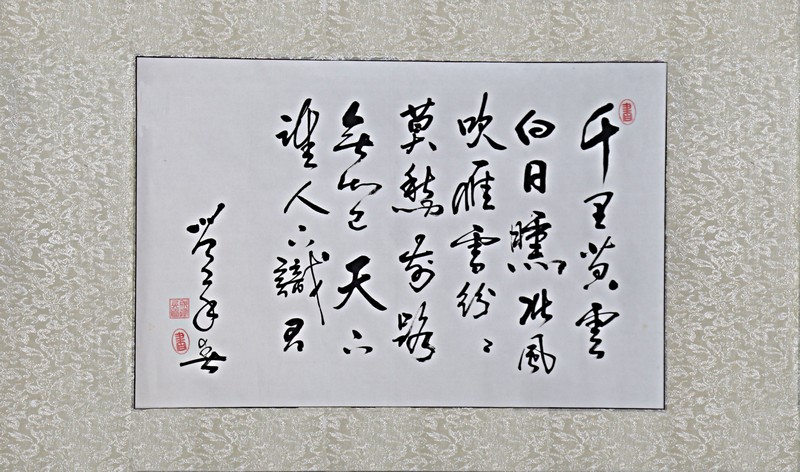 書
千里黄雲
白日曛北風
吹雁雪紛〻
莫愁前路
無知己天下
誰人不識君
書